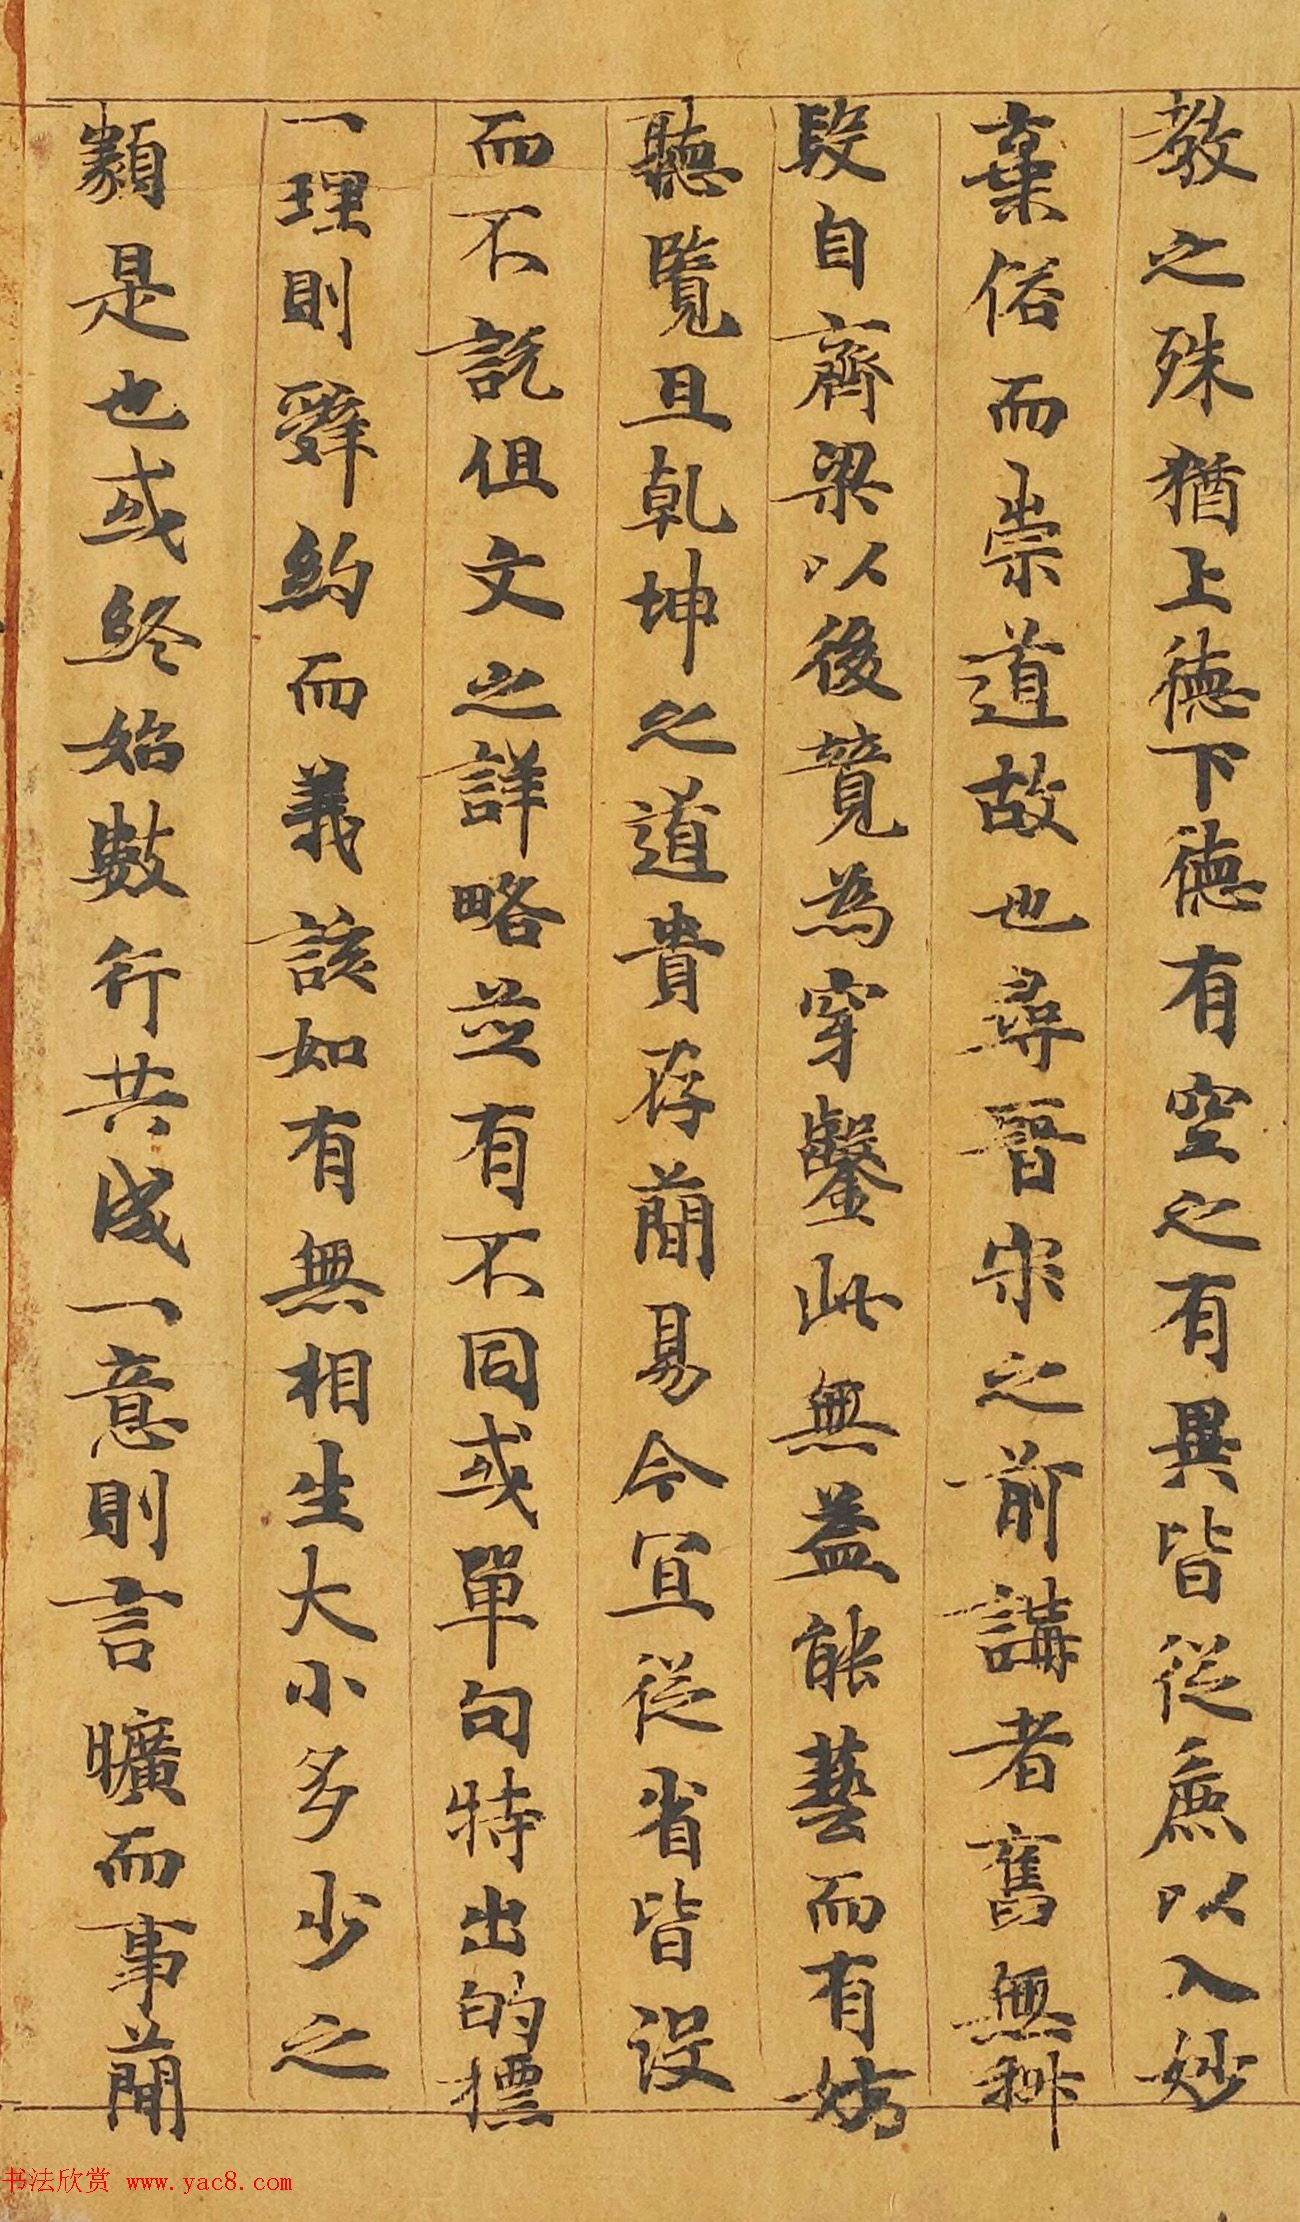 教之殊猶上德下德有空之有異皆從麁以入妙
棄俗而崇道故也尋晉宋之前講者舊無科
段自齊梁以後競為穿鑿此無益能藝而有妨
聽覽且乾坤之道貴存蕳易今宜從省皆沒
而不說但文之詳略並有不同或單句特出的摽
一理則辭約而義該如有無相生大小多少之
類是也或終始數行共成一意則言曠而事蕳
书法欣赏 www.yac8.com